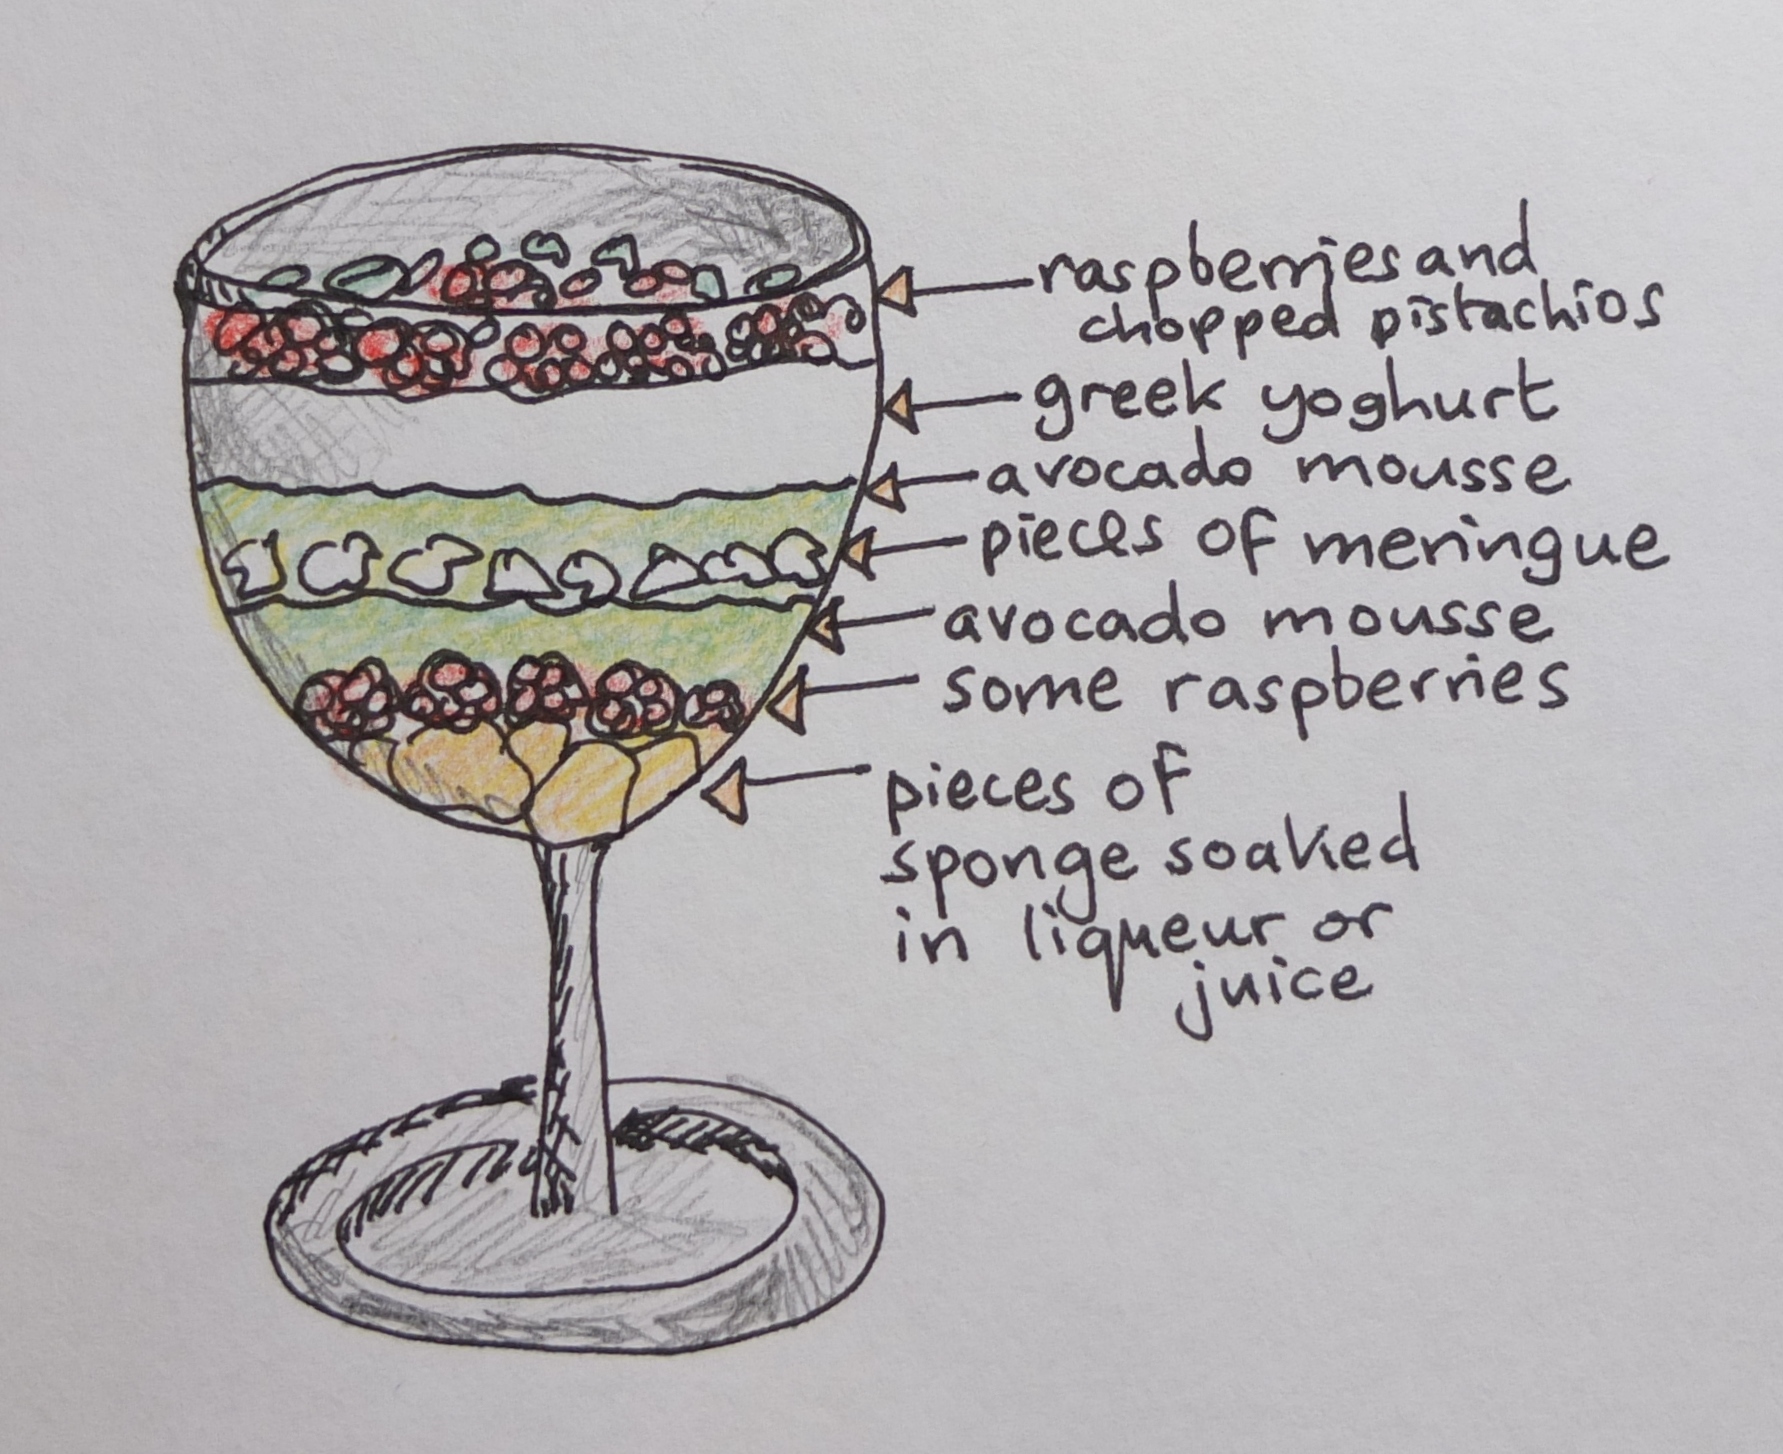 raspberries and
chopped pistachios
greek yoghurt
avocado mousse
pieces of meringue
avocado mousse
some raspberries
pieces of
sponge soaked
in liqueur or
juice